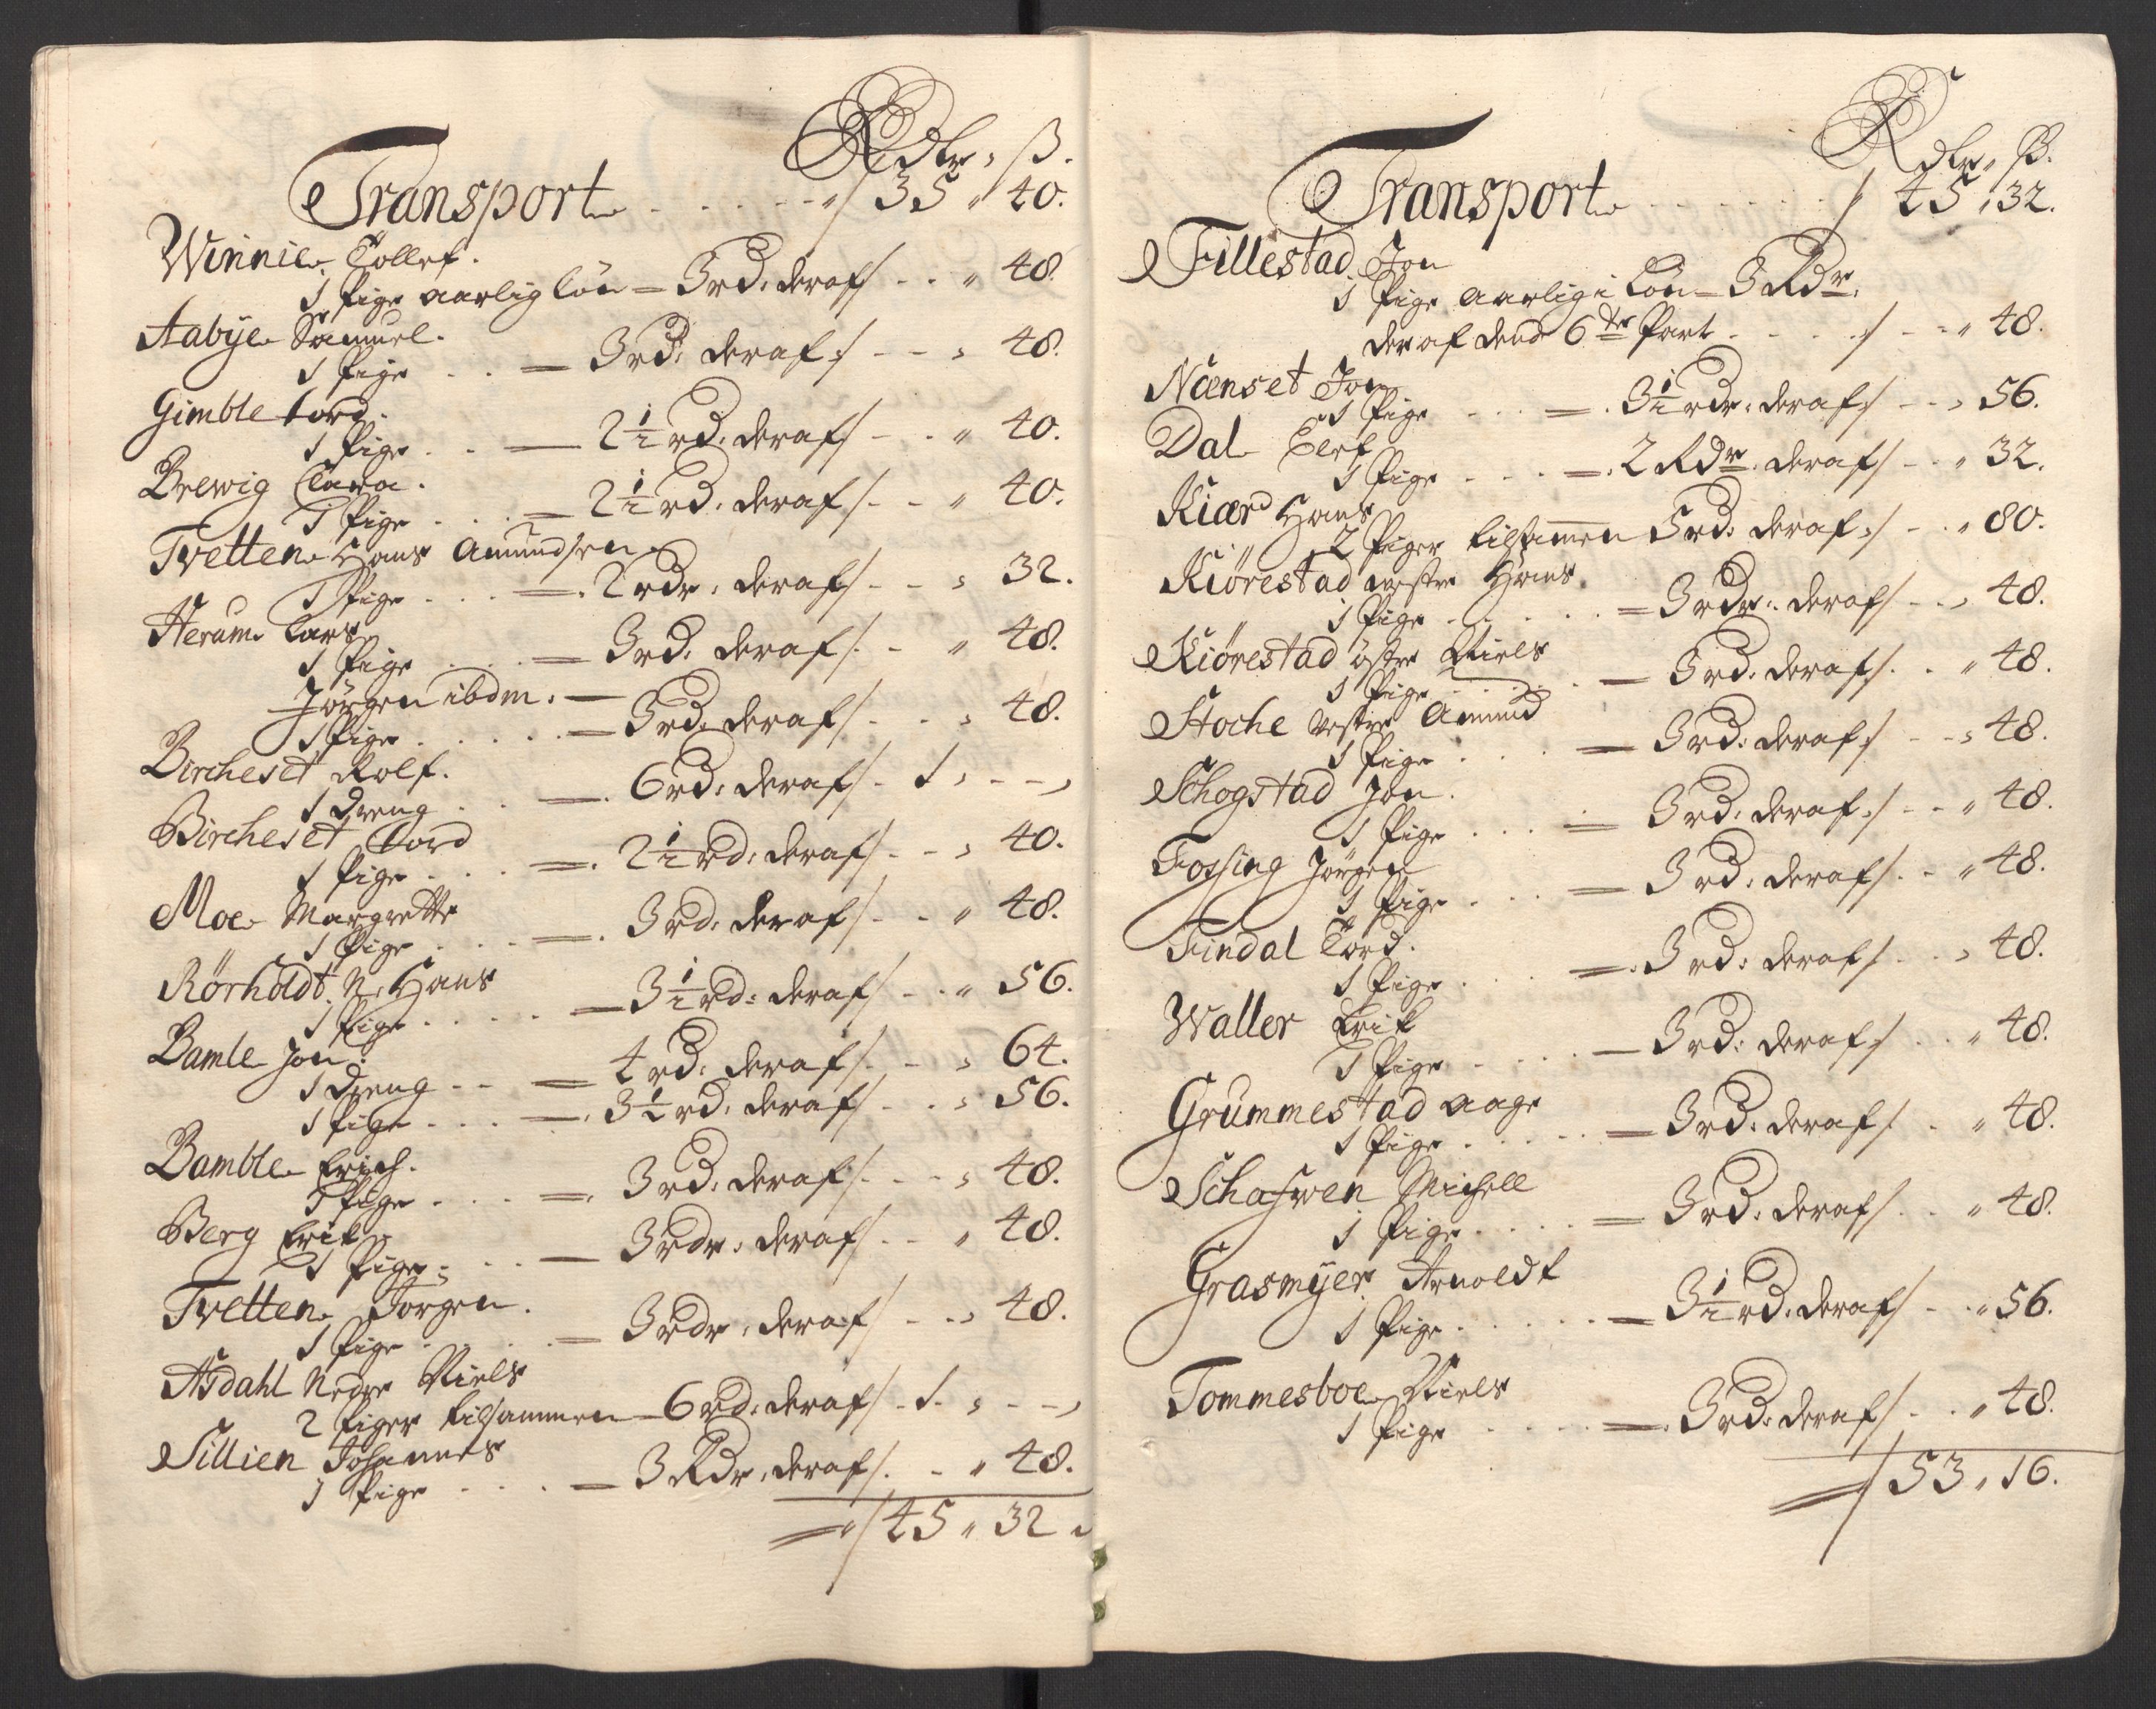 Rdlr, ß.
Transport - - - - - 35 " 40.
Winnie Tollef.
1 Pige aarlig lön = 3rd: deraf - - " 48.
Aabÿe Samuel.
1 Pige - - = 3rd: deraf - - , 48.
Gimble Tord.
1 Pige - - = 2½ rd: deraf - - " 40.
Brewig Clara.
1 Pige - - = 2½ rd: deraf - - " 40.
Tvetten Hans Amundsen
1 Pige - - = 2 rdr: deraf - - , 32.
Herum Lars
1 Pige - - = 3rd: deraf - - " 48.
Jörgen ibdm. -
1 Pige - - = 3rd: deraf - - , 48.
Bircheset Rolf.
1 dreng - - = 6rd: deraf - 1 , - - ,
Bircheset Tord
1 Pige - - = 2½ rd: deraf - - , 40.
Moe Margrette
1 Pige - - = 3rd: deraf - - " 48.
Rörholdt N: Hans
1 Pige - - = 3½ rd: deraf - - " 56.
Bamle Jon.
1 dreng - - = 4 rd: deraf - - , 64.
1 Pige - - = 3½ rd: deraf - - , 56.
Bamble Erich.
1 Pige - - = 3rd: deraf - - , 48.
Berg Erik
1 Pige - - = 3rdr: deraf - - , 48.
Tvetten Jörgen.
1 Pige - - = 3rdr: deraf - - , 48.
Asdahl Nedre Niels
2 Piger tilsammen = 6rd: deraf - 1 , - - ,
Sillien Johannes
1 Pige - - = 3 Rdr: deraf - - " 48.
= 45 " 32
Rdlr, ß.
Transport - - - - - 45 , 32.
Fillestad Jon
1 Pige aarlig i Lön = 3 Rdr.
deraf dend 6te Part - - - - " 48.
Nænset Jon
1 Pige - - = 3½ rdr: deraf - - , 56.
Dal Elef
1 Pige - - = 2 Rdr. deraf - - " 32.
Kiærd Hans
2 Piger tilsamen 5rd: deraf - - " 80.
Kiörestad westre Hans.
1 Pige - - = 3rdr: deraf - - , 48.
Kiörestad östre Niels
1 Pige - - = 3rd: deraf - - " 48.
Stoche vestre Amund
1 Pige - - = 3rd: deraf - - , 48.
Schogstad Jon.
1 Pige - - = 3rd: deraf - - " 48.
Fossing Jörgen
1 Pige - - = 3rd: deraf - - " 48.
Findal Tord.
1 Pige - - = 3rd: deraf - - , 48.
Waller Erik
1 Pige - - = 3rd: deraf - - " 48.
Grummestad Aage
1 Pige - - = 3rd: deraf - - " 48.
Schafwen Michell
1 Pige - - = 3rd: deraf - - " 48.
Grasmÿer Arnoldt
1 Pige - - = 3½ rd: deraf - - " 56.
Tommesboe Niels
1 Pige - - = 3rd: deraf - - " 48.
= 53 , 16.